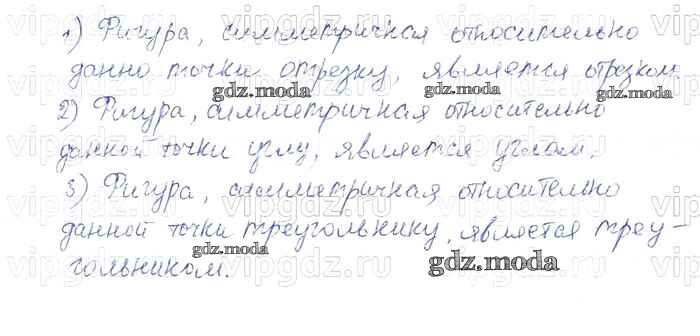 1) Фигура, симметричная относительно
данно точки отрезку, является отрезком.
gdz.moda gdz.moda gdz.moda
2) Фигура, симметричная относительно
данной точки углу, является углом.
gdz.moda
3) Фигура, симметричная относительно
данной точки треугольнику, является треу-
gdz.moda gdz.moda
гольником.
vipgdz.ru vipgdz.ru vipgdz.ru vipgdz.ru